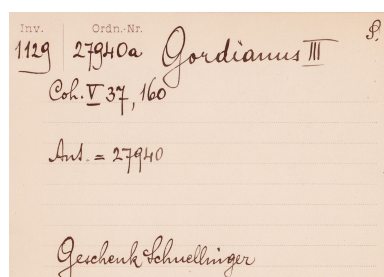 Inv. Ordn.-Nr.
1129 27940a Gordianus III S.
Coh. V 37, 160
Ant. = 27940
Geschenk Schnellinger